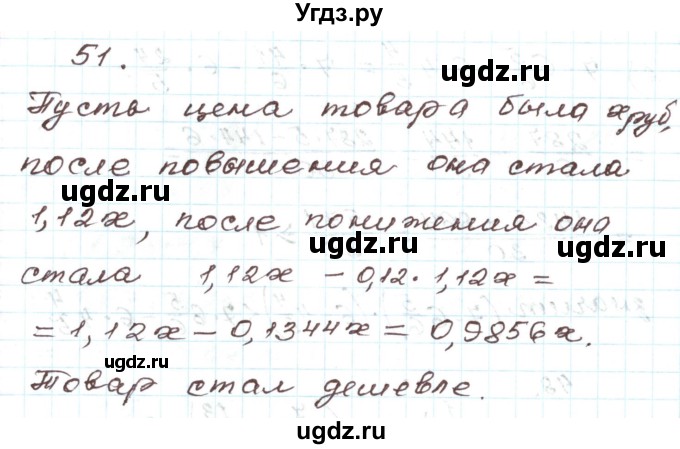 Угдз.ру
51.
Пусть цена товара была x руб,
после повышения она стала
ugdz.ru
ugdz.ru
1,12x, после понижения она
ugdz.ru
стала 1,12x - 0,12 · 1,12x =
= 1,12x - 0,1344x = 0,9856x.
ugdz.ru
Товар стал дешевле.
ugdz.ru
ugdz.ru